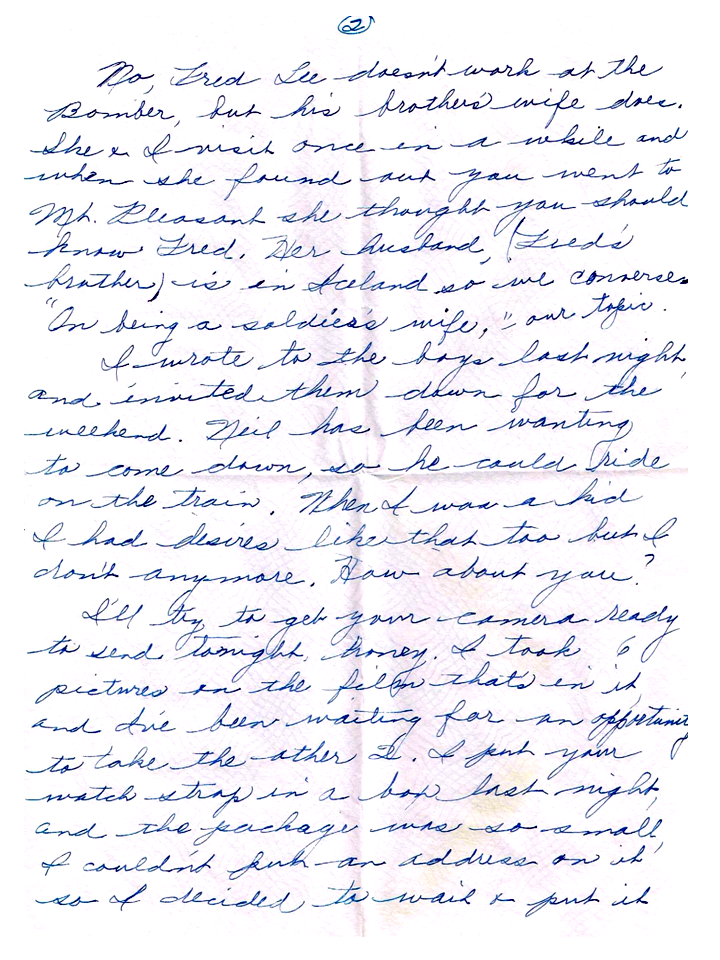 (2)
No, Fred Lee doesn't work at the
Bomber, but his brother's wife does.
She & I visit once in a while and
when she found out you went to
Mt. Pleasant she thought you should
know Fred. Her husband, (Fred's
brother) is in Iceland so we converse
"On being a soldier's wife," - our topic.
I wrote to the boys last night
and invited them down for the
weekend. Neil has been wanting
to come down, so he could ride
on the train. When I was a kid
I had desires like that too but I
don't anymore. How about you?
I'll try to get your camera ready
to send tonight, honey. I took 6
pictures on the film that's in it
and I've been waiting for an opportunity
to take the other 2. I put your
watch strap in a box last night,
and the package was so small,
I couldn't put an address on it
so I decided to wait & put it